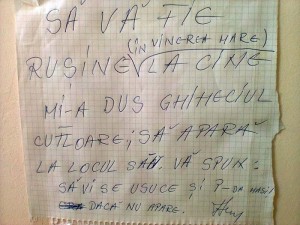 SĂ VĂ FIE
(ÎN VINEREA MARE)
RUȘINE LA CINE
MI-A DUS GHIHECIUL
CU FLOARE; SĂ APARĂ
LA LOCUL VĂ SPUN:
SĂ VI SE USUCE ȘI P-DA MASII
DACĂ NU APARE.